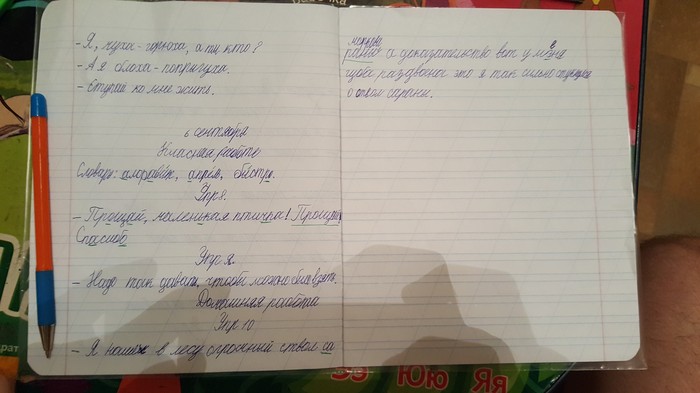 - Я, муха-горюха, а ты кто?
- А я блоха-попрыгуха.
- Ступай ко мне жить.
6 сентября
Класная работа
Словарь: апрель, быстро.
Упр 8.
- Прощай, маленькая птичка! Прощай
Спасибо
Упр 9.
- Надо так давать, чтобы можно было взять.
Домашняя работа
Упр 10
- Я нашёл в лесу огромный ствол са
морква
а доказательство вот у меня
это я так сильно
о ствол
Ээ Юю Яя